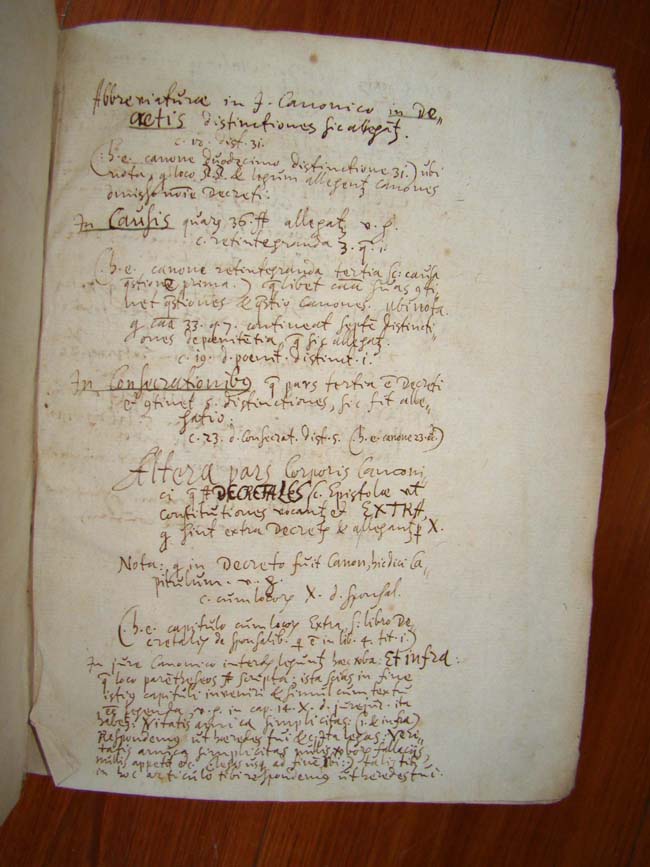 Abbreviaturae in J. Canonico in De-
cretis distinctiones sic allegat̃.
c. 12. dist. 31.
(h.e. canone duodecimo distinctione 31.) ubi
nota, q loco & legum allegent̃ canones
omisso noĩe Decreti.
In Causis quarũ 36. allegat̃ v. g.
c. retintegranda 3. q. 1.
(h.e. canone retintegranda tertia sc. causa
q̃stione prima.) q̃libet caã suas 9ti-
net q̃stiones & q̃stio canones. ubi nota.
q caã 33. q. 7. contineat septẽ distincti-
ones de penitentia, q̃ sic allegat̃.
c. 19. d. poenit. distinct. 1.
In Consecrationib9 q̃ pars tertia ẽ Decreti
et 9tinet 5. distinctiones, sic fit alle-
gatio.
c. 23. d. Consecrat. dist. 5. (h.e. canone 23. d.)
Altera pars Corporis Canoni-
ci q̃ DECRETALES (c. Epistolae vt
constitutiones vocant̃ et EXTRA,
q. sint extra Decret & allegant̃ p X.
Nota: q in Decreto fuit Canon, hic dici Ca-
pitulum. v. g.
c. cum locum X. d. sponsal.
(h.e. capitulo cum locum Extra, s. libro De-
cretaliũ de sponsalib. q ẽ in lib. 4. tit. 1.)
In jure Canonico interdũ legunt̃ haec vba: Et infra:
q̃ loco parẽtheseos scripta; ista scias in fine
istius capituli inveniri & simul cum textu
legenda v. g. in cap. 14. X. d. jurejur. ita
habet: Vitatis amica simplicitas: (i. & infra)
Respondemus ut heredes tui & c. ita legas: Veri-
tatis amica simplicitas nullis fallacijs,
nullis appetit &c. usq ad finẽ ibi:)
in hoc articulo tibi respondemus ut heredes tui.